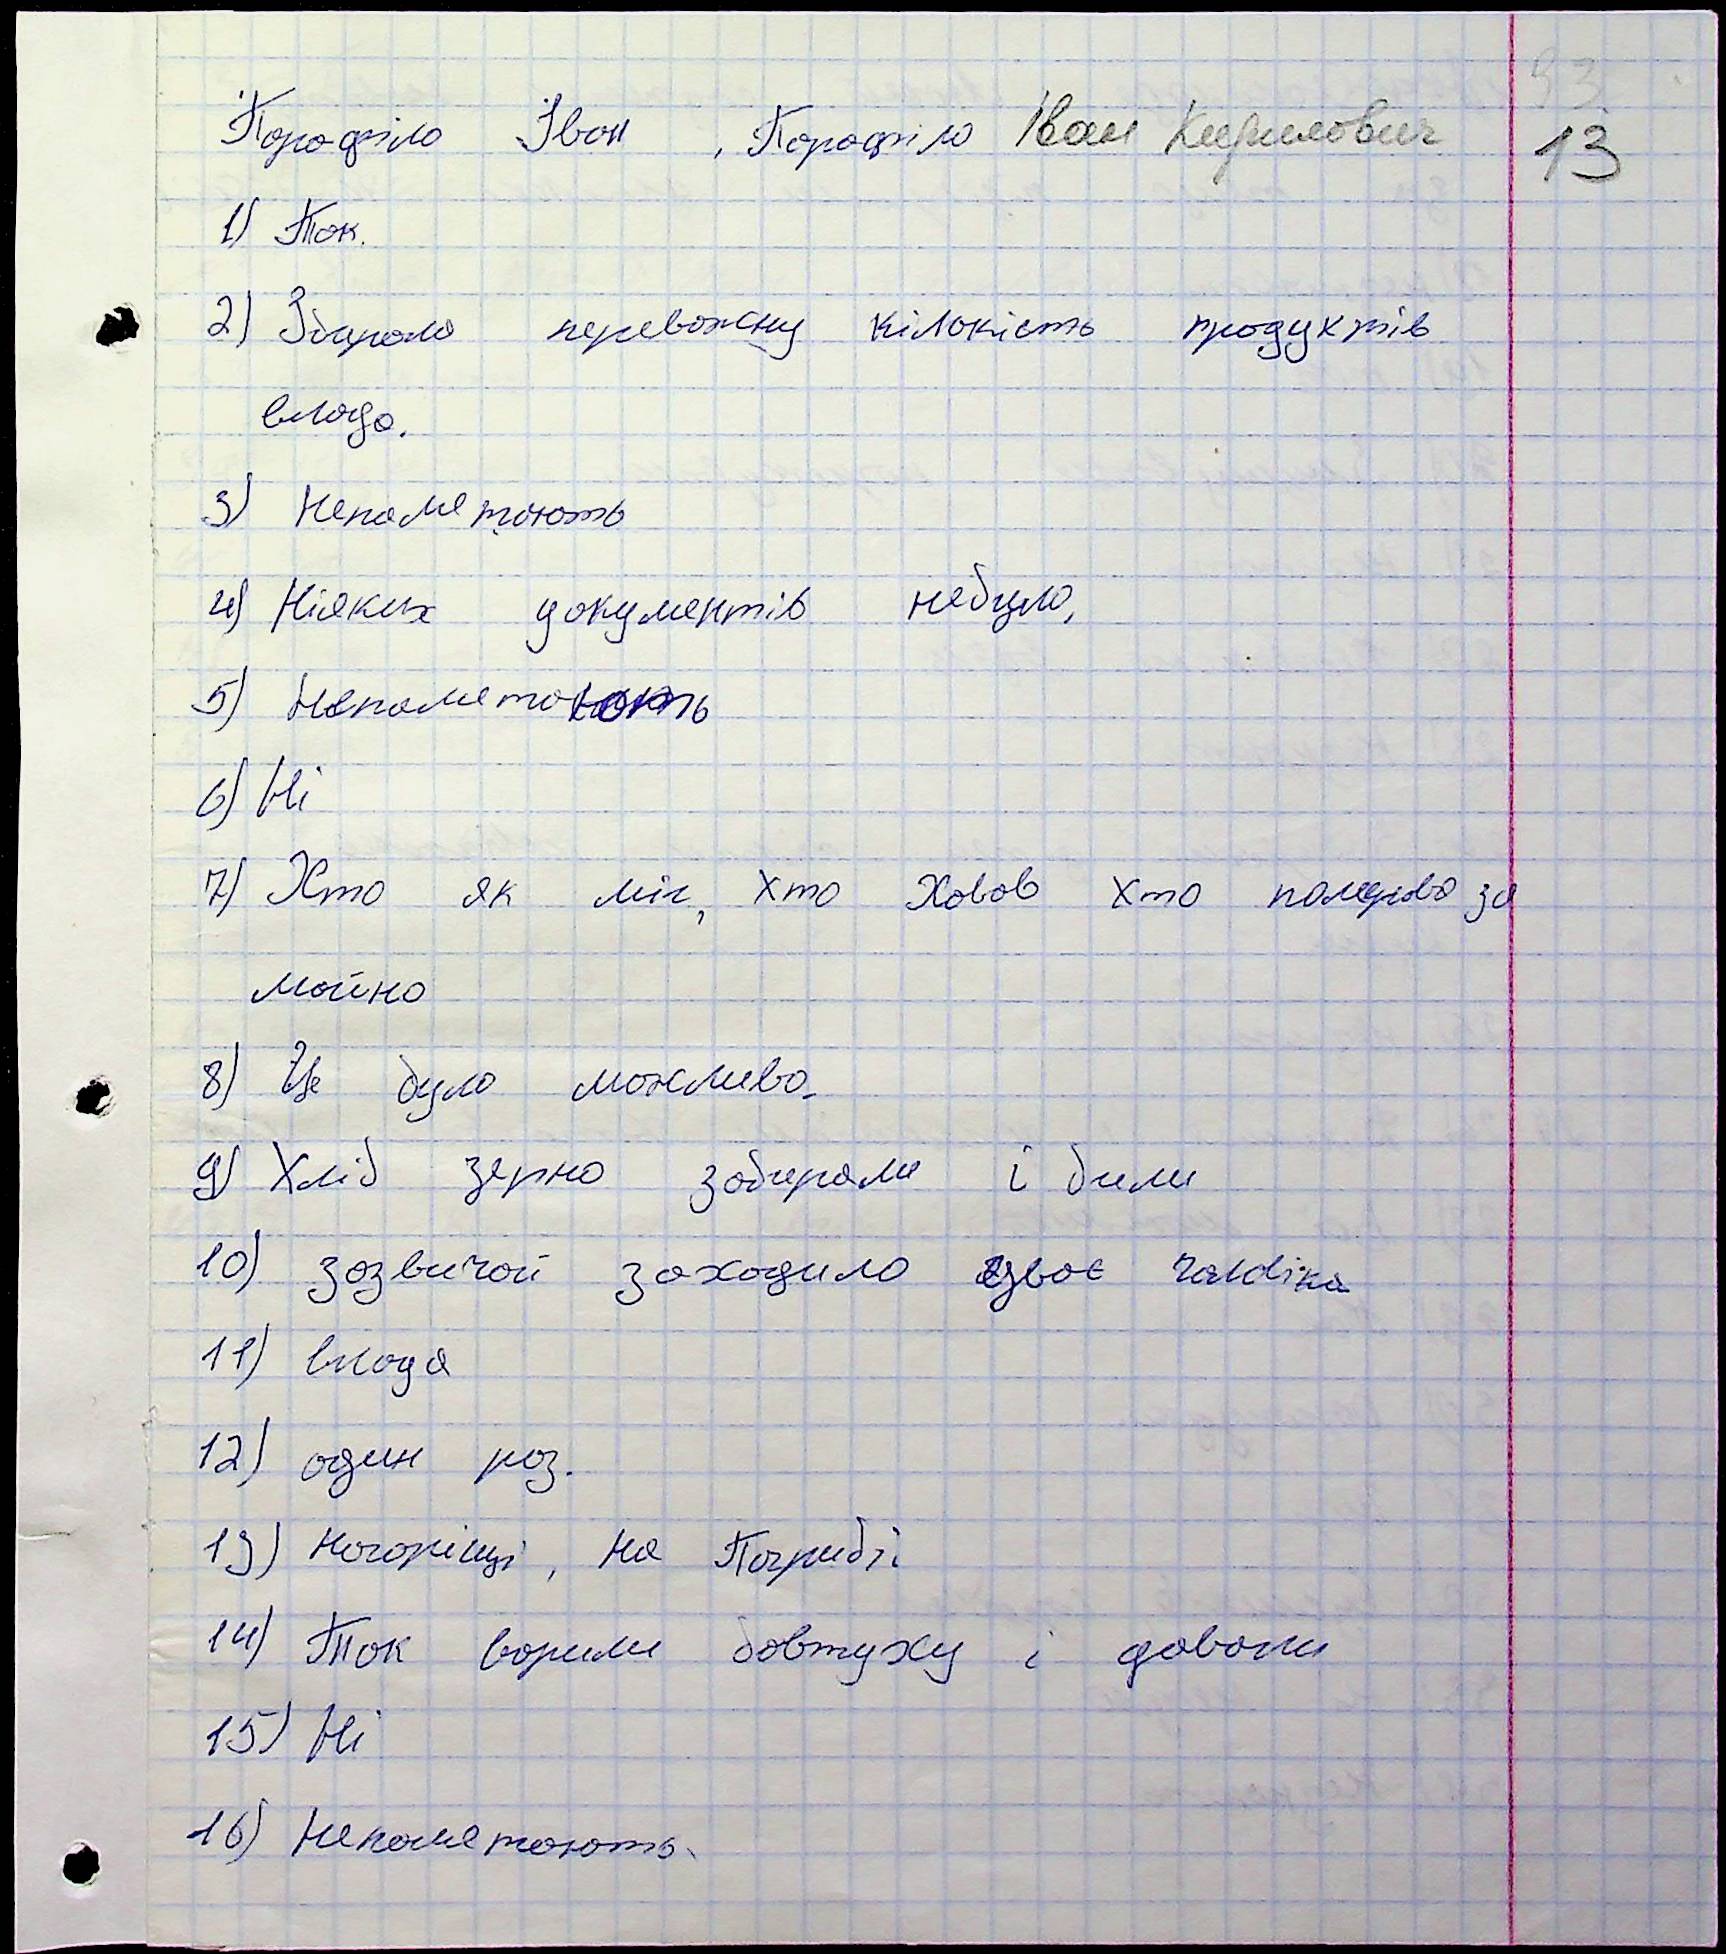 Парафіло Іван, Парафіло Іван Кирилович 13
1) Так.
2) Збирала переважну кількість продуктів
влада.
3) Непамятають
4) Ніяких документів небуло,
5) Непамятають
6) Ні
7) Хто як міг, хто ховав хто помирав за
майно
8) Це було можливо.
9) Хліб зерно забирали і били
10) зазвичай заходило двоє
11) влада
12) один раз.
13) Нагоріщі, на Погрибі
14) Так варили бовтуху і давали
15) Ні
16) Непамятають.